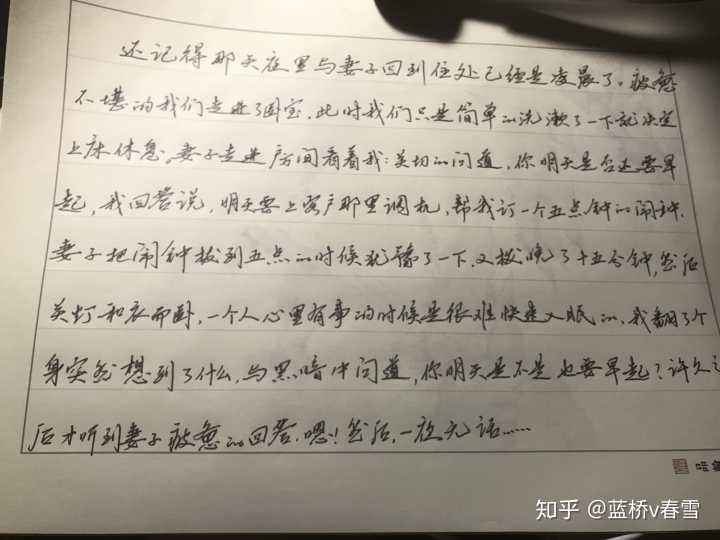 还记得那天夜里与妻子回到住处已经是凌晨了。疲惫
不堪的我们走进了卧室，此时我们只是简单的洗漱了一下就决定
上床休息，妻子走进房间看着我：关切的问道，你明天是否还要早
起，我回答说，明天要上客户那里调机，帮我订一个五点钟的闹钟.
妻子把闹钟拨到五点的时候犹豫了一下.又拨晚了十五分钟,然后
关灯和衣而卧，一个人心里有事的时候是很难快速入眠的，我翻了个
身突然想到了什么，与黑暗中问道，你明天是不是也要早起？许久之
后才听到妻子疲惫的回答.嗯！然后，一夜无话……
知乎 @蓝桥v春雪